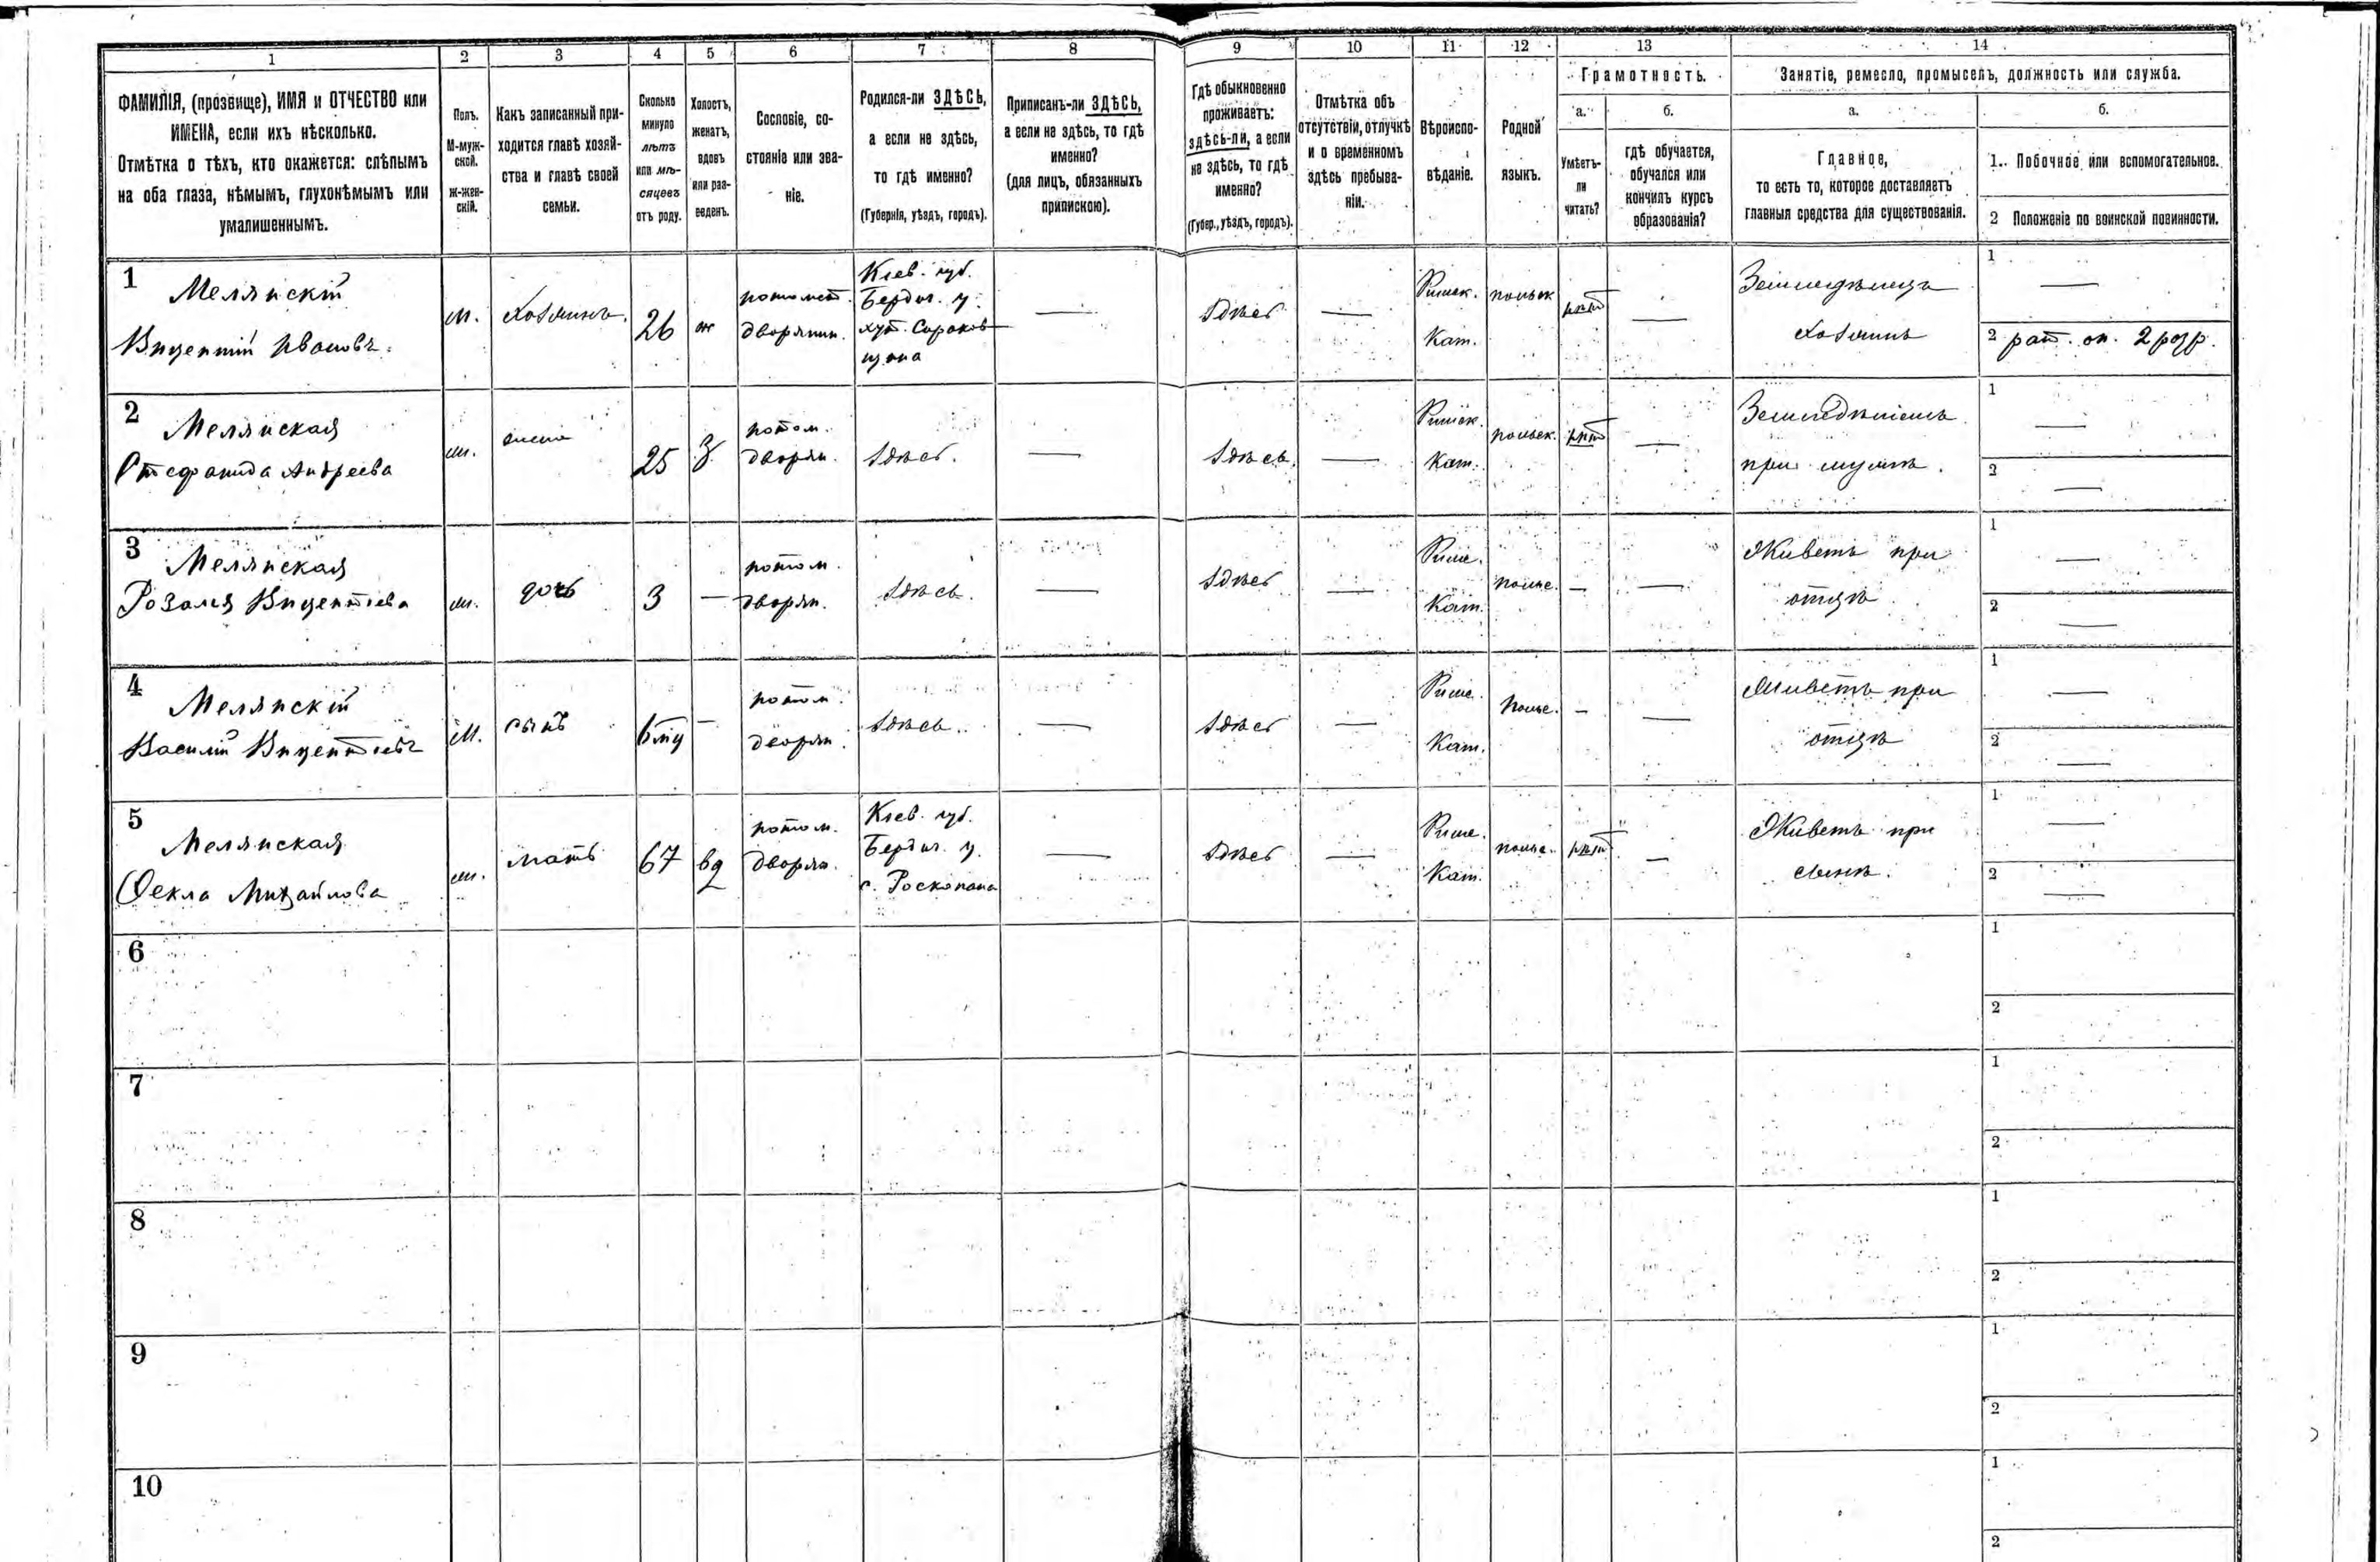 1 2 3 4 5 6 7 8 9 10 11 12 13 14
ФАМИЛІЯ, (прозвище), ИМЯ и ОТЧЕСТВО или
ИМЕНА, если ихъ нѣсколько.
Отмѣтка о тѣхъ, кто окажется: слѣпымъ
на оба глаза, нѣмымъ, глухонѣмымъ или
умалишеннымъ.
Полъ.
М-муж-
ской.
ж-жен-
скій.
Какъ записанный при-
ходится главѣ хозяй-
ства и главѣ своей
семьи.
Сколько
минуло
лѣтъ
или мѣ-
сяцевъ
отъ роду.
Холостъ,
женатъ,
вдовъ
или раз-
веденъ.
Сословіе, со-
стояніе или зва-
ніе.
Родился-ли ЗДѢСЬ,
а если не здѣсь,
то гдѣ именно?
(Губернія, уѣздъ, городъ).
Приписанъ-ли ЗДѢСЬ,
а если не здѣсь, то гдѣ
именно?
(для лицъ, обязанныхъ
припискою).
Гдѣ обыкновенно
проживаетъ:
здѣсь-ли, а если
не здѣсь, то гдѣ
именно?
(Губер., уѣздъ, городъ).
Отмѣтка объ
отсутствіи, отлучкѣ
и о временномъ
здѣсь пребыва-
ніи.
Вѣроиспо-
вѣданіе.
Родной
языкъ.
Грамотность.
а.
Умѣетъ-
ли
читать?
б.
гдѣ обучается,
обучался или
кончилъ курсъ
образованія?
Занятіе, ремесло, промыселъ, должность или служба.
а.
Главное,
то есть то, которое доставляетъ
главныя средства для существованія.
б.
1. Побочное или вспомогательное.
2 Положеніе по воинской повинности.
1
Мелянскій
Вицентій Ивановъ
м.
Хозяинъ
26
ж
потомст.
дворянин.
Кіев. губ.
Бердич. у.
хут. Сороков-
щина
—
Здѣсь
—
Римск.
Кат.
польск
—
Земледѣлецъ
Хозяинъ
1
—
2 рат. оп. 2 розр.
2
Мелянская
Стефанида Андреева
ж.
жена
25
З
потом.
дворян.
Здѣсь.
—
Здѣсь
—
Римск.
Кат.
польск.
—
при мужѣ.
1
—
2
—
3
Мелянская
Розалія Вицентіева
ж.
дочь
3
—
потом.
дворян.
Здѣсь.
—
Здѣсь
—
Римс.
Кат.
польс.
—
—
Живетъ при
отцѣ
1
—
2
—
4
Мелянскій
Василій Вицентіевъ
М.
сынъ
—
потом.
дворян.
Здѣсь.
—
Здѣсь
—
Римс.
Кат.
польс.
—
—
Живетъ при
отцѣ
1
—
2
—
5
Мелянская
Ѳекла Михайлова
ж.
мать
67
вд
потом.
дворян.
Кіев. губ.
Бердич. у.
с. Роскопана
—
Здѣсь
—
Римс.
Кат.
польс.
—
Живетъ при
сынѣ.
1
—
2
—
6
1
2
7
1
2
8
1
2
9
1
2
10
1
2